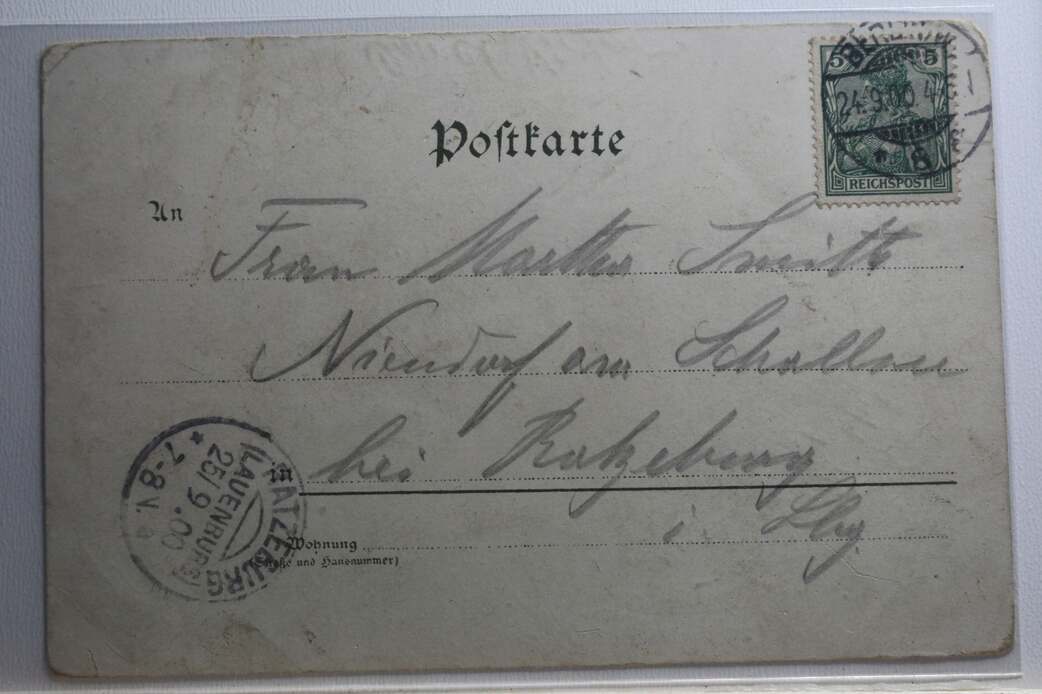 Postkarte
5 5
BERLIN
24.9.00.4
8
REICHSPOST
An
Frau Martha Smitt
Niendorf am Schallsee
in bei Ratzeburg
i. Lbg
Wohnung
(Straße und Hausnummer)
RATZEBURG
(LAUENBURG)
25/9.00
* 7-8V. *